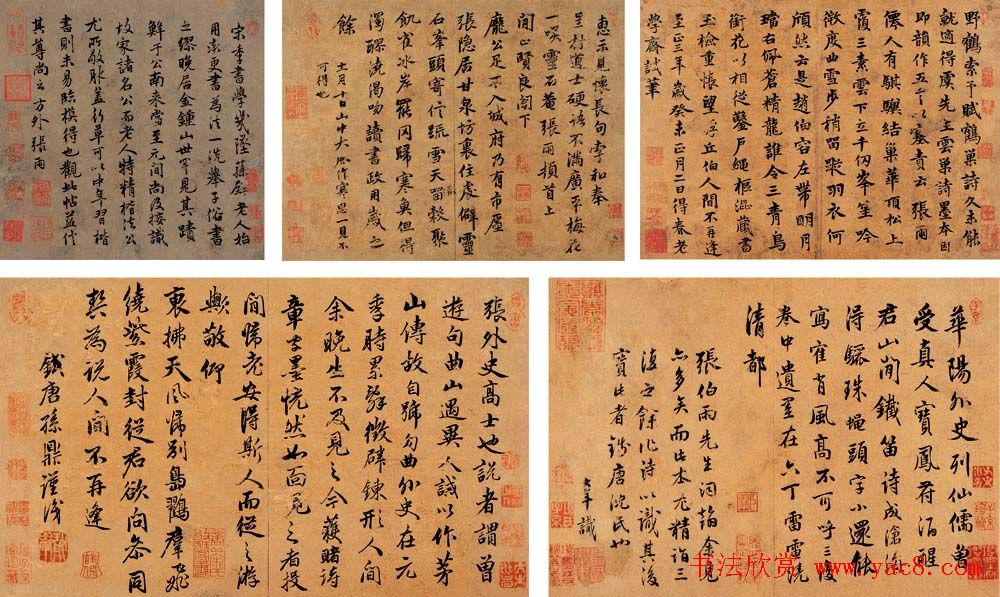 宋季書學幾墜蓀壁老人始
用彭更書為法一洗舉子俗書
之繆晚居金鍾山世罕見其蹟
鮮于公南來當至元間尚及接識
故家諸石公而老人特精楷法公
尤所敬服蓋行草可以中年習楷
書則未易臨摸得也觀此帖益信
其尊尚之方外張雨
惠示見懷長句字和奉
呈村道士硬語不滿廣平梅花
一咲靈石菴張雨頓首上
閒止賢良閤下
龐公足不入城府乃有市廛
張隱居甘泉坊裏住處僻靈
石峯頭寄信疏雪天留穀聚
飢雀冰岸罷网歸寒魚但得
濁醪澆渴吻讀書政用歲之
餘
十二月十日山中大作寒思一見不
可得也
野鶴索予賦鶴巢詩久未能
就適得虞先生雲巢詩墨本因
即韻作五言以塞責云張雨
僊人有騏驥結巢華頂松上
極三素雲下立千仞峯笙吟
微度曲雪步稍留蹤羽衣何
頎然云是趙伯容左帶明月
璫右佩蒼精龍誰令三青鳥
銜花以相從鑿戶繩樞漚藏書
玉檢重悵望浮丘伯人間不再逢
至正三年歲癸未正月二日得春老
學齋試筆
張外史高士也說者謂曾
遊句曲山遇異人誡以作茅
山傳故自號句曲外史在元
季時累辭徵辟鍊形人間
余晚生不及見之今獲睹詩
章字墨恍然如面覓之者投
間歸老安得斯人而從之游
歟敬仰
裹拂天風歸別島翾羣飛
繞紫霞封從君欲向參同
契為說人間不再逢
錢唐孫鼎謹識
華陽外史列仙儒曾
受真人寶鳳符酒醒
君山聞鐵笛詩成滄海
得驪珠蠅頭字小還能
寫隺背風高不可呼三復
卷中遺墨在六丁雷電繞
清都
張伯雨先生詞翰余見
亦多矣而此本尤精詣三
復之餘作詩以識其後
寶此者錢唐沈氏也
士平識
书法欣赏 www.yac8.com